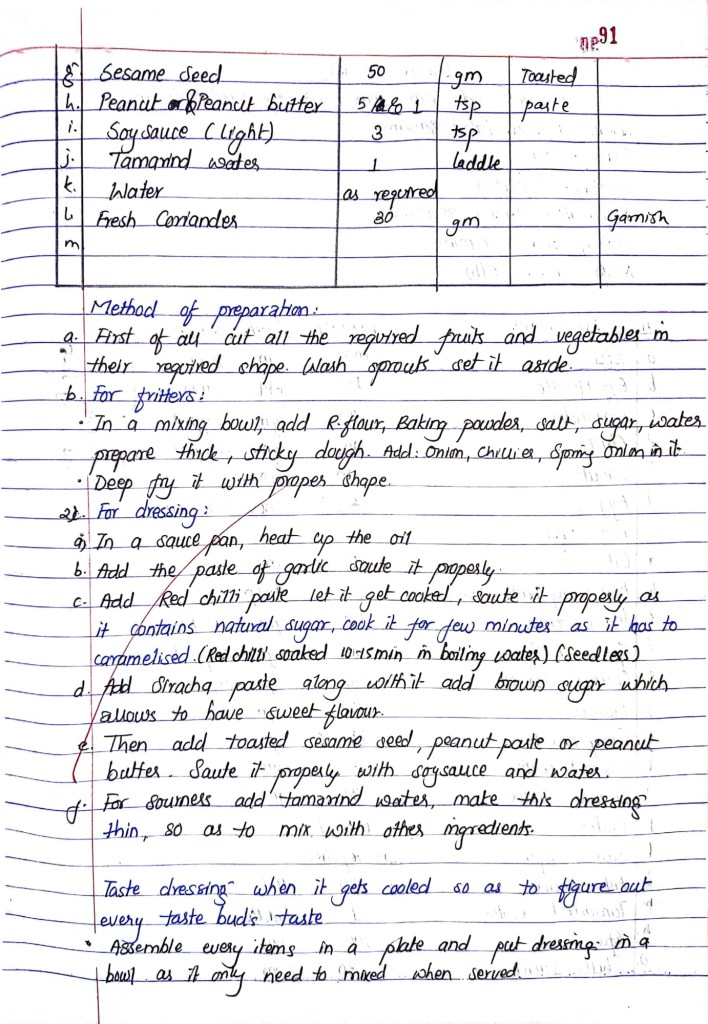 ne 91
g. Sesame Seed 50 gm Toasted
h. Peanut or Peanut butter 5 1 tsp paste
i. Soy sauce (light) 3 tsp
j. Tamarind water 1 laddle
k. Water as required
l Fresh Corriander 30 gm Garnish
m
Method of preparation:
a. First of all cut all the required fruits and vegetables in
their required shape. Wash sprouts set it aside.
b. For fritters:
• In a mixing bowl, add R.flour, Baking powder, salt, sugar, water
prepare thick, sticky dough. Add: Onion, Chillies, Spring Onion in it
• Deep fry it with proper shape.
2). For dressing:
a) In a sauce pan, heat up the oil
b. Add the paste of garlic saute it properly.
c. Add Red chilli paste let it get cooked, saute it properly as
it contains natural sugar, cook it for few minutes as it has to
caramelised. (Red chilli soaked 10-15min in boiling water) (Seedless)
d. Add Siracha paste along with it add brown sugar which
allows to have sweet flavour.
e. Then add toasted sesame seed, peanut paste or peanut
butter. Saute it properly with soysauce and water.
f. For sourness add tamarind water, make this dressing
thin, so as to mix with other ingredients.
Taste dressing when it gets cooled so as to figure out
every taste bud's taste
• Assemble every items in a plate and put dressing in a
bowl as it only need to mixed when served.